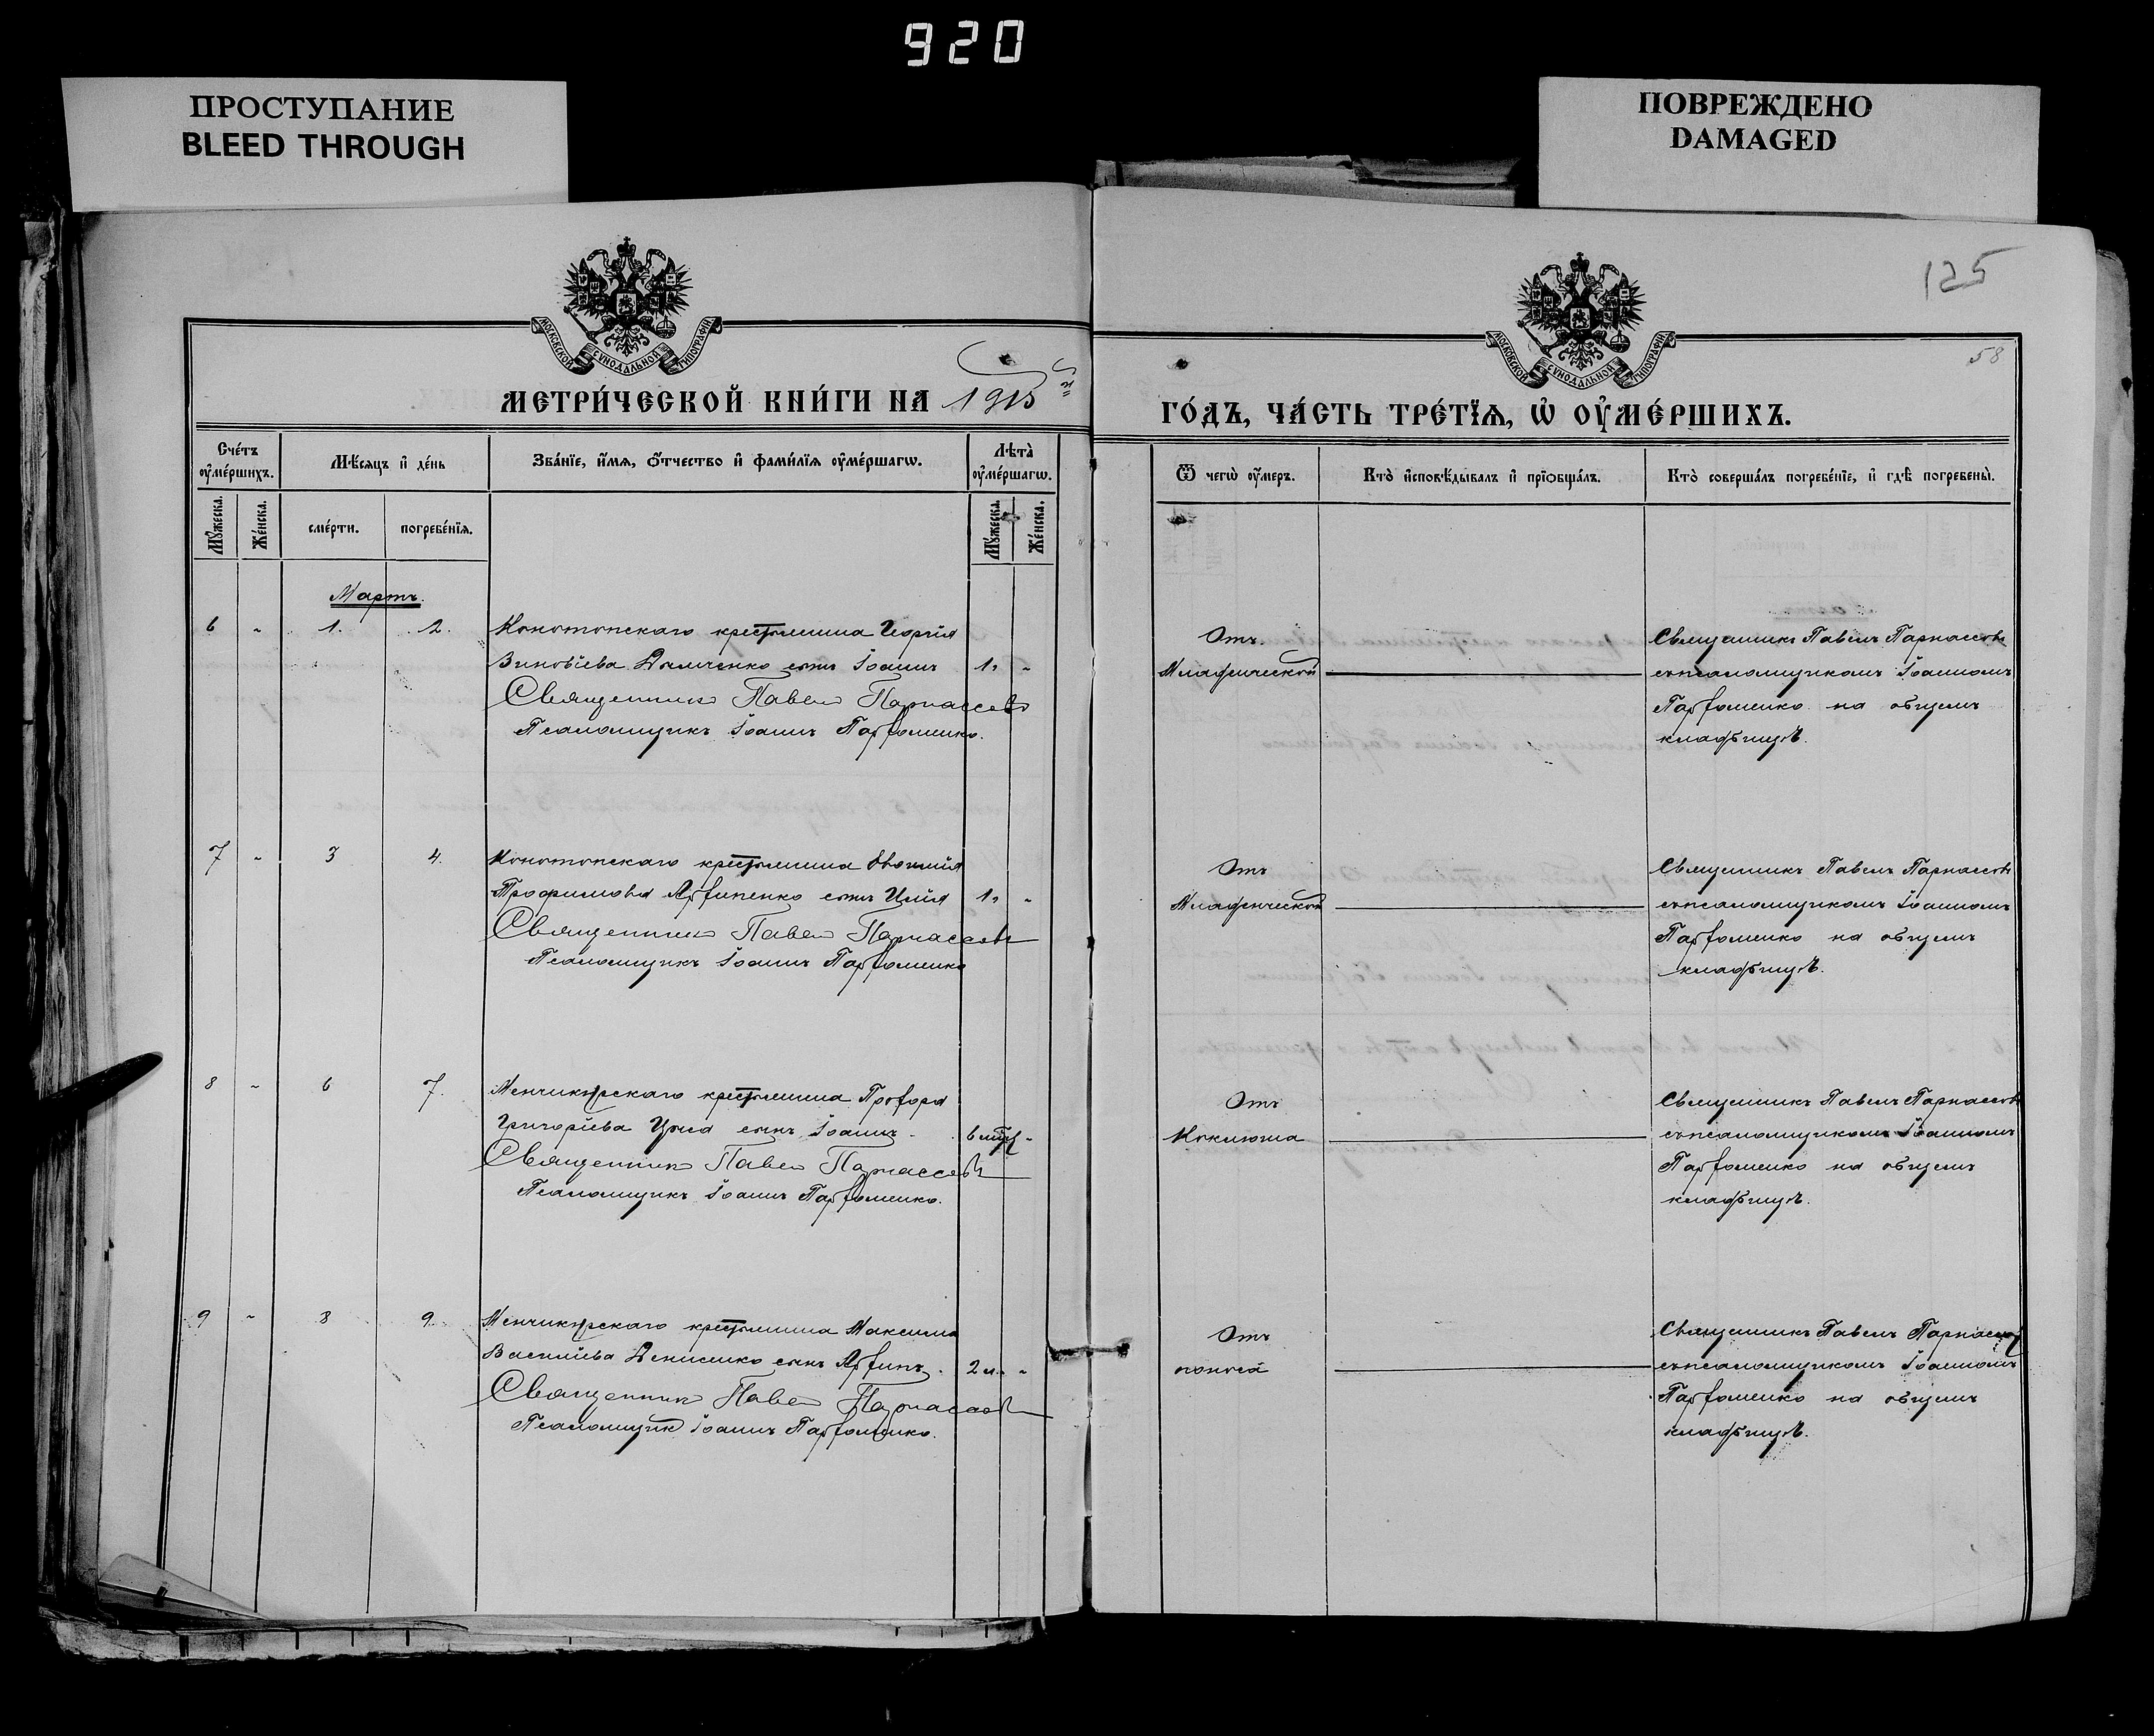 920
ПРОСТУПАНИЕ
BLEED THROUGH
ПОВРЕЖДЕНО
DAMAGED
125
58
МОСКОВСКОЙ СѴНОДАЛЬНОЙ ТИПОГРАФІИ
МОСКОВСКОЙ СѴНОДАЛЬНОЙ ТИПОГРАФІИ
МЕТРИ́ЧЕСКОЙ КНИ́ГИ НА 1915й
ГО́ДЪ, ЧА́СТЬ ТРЕ́ТЇѦ, Ѡ҆ ОУ҆МЕ́РШИХЪ.
Сче́тъ оу҆ме́ршихъ.
Мѣ́сяцъ и҆ де́нь
Зва́нїе, и҆́мѧ, ѻ҆́тчество и҆ фами́лїѧ оу҆ме́ршагѡ.
Лѣ́та оу҆ме́ршагѡ.
Му́жеска.
Же́нска.
сме́рти.
погребе́нїѧ.
Му́жеска.
Же́нска.
Ѿ чегѡ̀ оу҆́меръ.
Кто̀ и҆сповѣ́дывалъ и҆ прїѻбща́лъ.
Кто̀ соверша́лъ погребе́нїе, и҆ гдѣ̀ погребены̀.
Мартъ.
6 " 1. 2. Конотопскаго крестьянина Георгія
Зиновіева Дяченко сынъ Іоаннъ 1 "
Священникъ Павелъ Парнассовъ
Псаломщикъ Іоаннъ Пархоменко.
Отъ
Младенческой
Священникъ Павелъ Парнассовъ
съ псаломщикомъ Іоанномъ
Пархоменко на общемъ
кладбищѣ.
7 " 3 4. Конотопскаго крестьянина
Трофимова Архипенко сынъ Илія 1 "
Священникъ Павелъ Парнассовъ
Псаломщикъ Іоаннъ Пархоменко
Отъ
Младенческой
Священникъ Павелъ Парнассовъ
съ псаломщикомъ Іоанномъ
Пархоменко на общемъ
кладбищѣ.
8 " 6 7. Менчикурскаго крестьянина Прохора
Григоріева сынъ Іоаннъ 6 "
Священникъ Павелъ Парнассовъ
Псаломщикъ Іоаннъ Пархоменко.
Отъ
Коклюша
Священникъ Павелъ Парнассовъ
съ псаломщикомъ Іоанномъ
Пархоменко на общемъ
кладбищѣ.
9 " 8 9. Менчикурскаго крестьянина Максима
Василіева Денисенко сынъ Архипъ. 2 м. "
Священникъ Павелъ Парнассовъ
Псаломщикъ Іоаннъ Пархоменко.
Отъ
поноса
Священникъ Павелъ Парнассовъ
съ псаломщикомъ Іоанномъ
Пархоменко на общемъ
кладбищѣ.